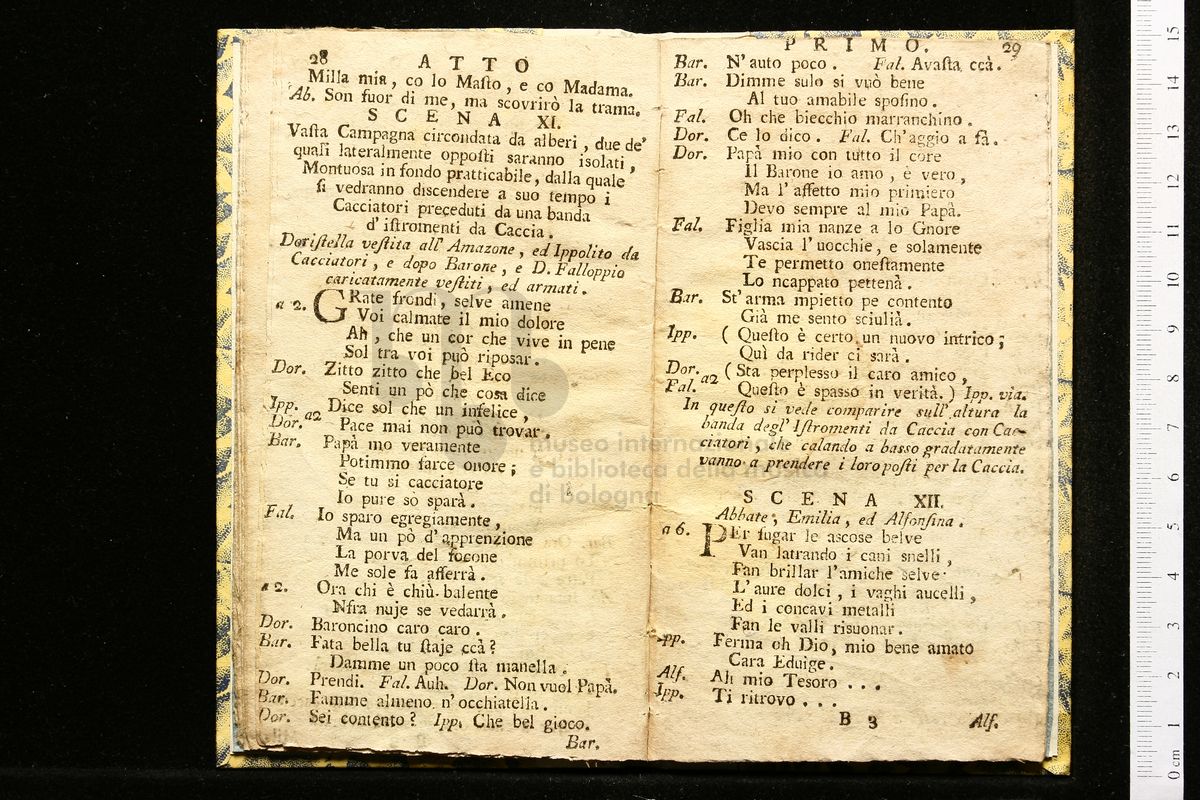 28
ATTO
Milla mia, co lo Maſto, e co Madama.
Ab. Son fuor di me, ma scovrirò la trama.
SCENA XI.
Vaſta Campagna circondata da alberi, due de'
quali lateralmente oppoſti saranno isolati,
Montuosa in fondo pratticabile, dalla quale
ſi vedranno discendere a suo tempo i
Cacciatori preceduti da una banda
d' iſtromenti da Caccia.
Doriſtella veſtita all' Amazone, ed Ippolito da
Cacciatori, e dopo Barone, e D. Falloppio
caricatamente veſtiti, ed armati.
a 2. GRate frondi, selve amene
Voi calmate il mio dolore
Ah, che un cor che vive in pene
Sol tra voi può riposar.
Dor. Zitto zitto che bel Eco
Senti un pò che cosa dice
Ipp.
Dor. a2 Dice sol che un infelice,
Pace mai non può trovar.
Bar. Papà mo veramente
Potimmo farce onore;
Se tu si cacciatore
Io pure sò sparà.
Fal. Io sparo egregiamente,
Ma un pò d'apprenzione
La porva del focone
Me sole fa afferrà.
a 2. Ora chi è chiù balente
Nfra nuje se vedarrà.
Dor. Baroncino caro caro.
Bar. Fata bella tu ſtaje ccà?
Damme un poco ſta manella.
Dor. Prendi. Fal. Auh. Dor. Non vuol Papà.
Bar. Famme almeno n'occhiatella.
Dor. Sei contento? Ipp. Che bel gioco.
Bar.
PRIMO. 29
Bar. N'auto poco. Fal. Avaſta ccà.
Bar. Dimme sulo si vuò bene
Al tuo amabile sposino.
Fal. Oh che biecchio marranchino.
Dor. Ce lo dico. Fal. Ch'aggio a fà.
Dor. Papà mio con tutto il core
Il Barone io amo, è vero,
Ma l'affetto mio primiero
Devo sempre al mio Papà.
Fal. Figlia mia nanze a lo Gnore
Vascia l'uocchie, e solamente
Te permetto oneſtamente
Lo ncappato pettenà.
Bar. St'arma mpietto pe contento
Già me sento sciulià.
Ipp. (Queſto è certo un nuovo intrico;
Quì da rider ci sarà.
Dor.
Fal. a2 (Sta perplesso il caro amico,
Queſto è spasso in verità.) Ipp. vìa.
In queſto si vede comparire sull'altura la
banda degl'Iſtromenti da Caccia con Cac-
ciatori, che calando a basso gradatamente
vanno a prendere i loro poſti per la Caccia.
SCENA XII.
Abbate, Emilia, ed Alfonsina.
a 6. PEr fugar le ascose belve
Van latrando i cani snelli,
Fan brillar l'amiche selve
L'aure dolci, i vaghi aucelli,
Ed i concavi metalli
Fan le valli risuonar.
Ipp. Ferma oh Dio, mio bene amato
Cara Eduige.
Alf. Ah mio Tesoro ...
Ipp. Ti ritrovo ...
B 3 Alf.
museo internazionale
e biblioteca della musica
di bologna
0 cm 1 2 3 4 5 6 7 8 9 10 11 12 13 14 15